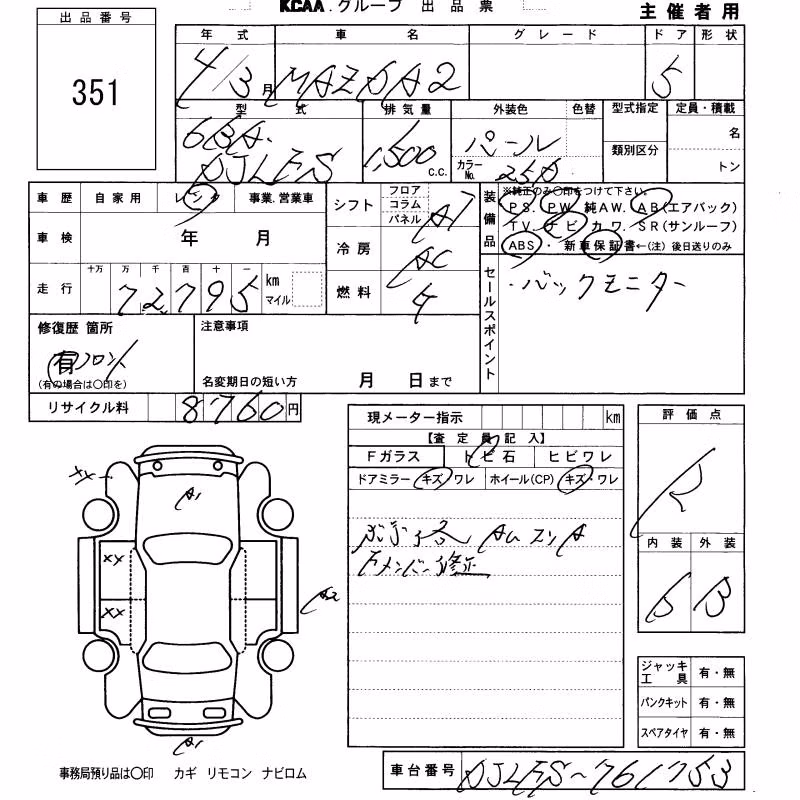 KCAA.グループ 出品票
主催者用
出品番号
351
年式 車名 グレード ドア 形状
4/3月 MAZDA2 5
型式 排気量 外装色 色替 型式指定 定員・積載
6BA. DJLFS 1,500 c.c. パール カラーNo. 25D 類別区分 名 トン
車歴 自家用 レンタ 事業.営業車
車検 年 月
走行 十万 万 千 百 十 一
72,795 km マイル
シフト フロア コラム パネル AT
冷房 AC
燃料 ガ
装備品 ※純正のみ〇印をつけて下さい。
PS. PW. 純AW. AB(エアバック)
TV. ナビ カワ. SR(サンルーフ)
ABS・新車保証書←(注)後日送りのみ
セールスポイント
・バックモニター
修復歴 箇所
有 フロント
(有の場合は〇印を)
注意事項
名変期日の短い方 月 日まで
リサイクル料 8760円
現メーター指示 km
【査定員記入】
Fガラス トビ石 ヒビワレ
ドアミラー キズ ワレ ホイール(CP) キズ・ワレ
Fメンバー修正
評価点
R
内装 外装
B B
XX
A1
XX
XX
A2
A1
ジャッキ工具 有・無
パンクキット 有・無
スペアタイヤ 有・無
事務局預り品は〇印 カギ リモコン ナビロム
車台番号 DJLFS-761753